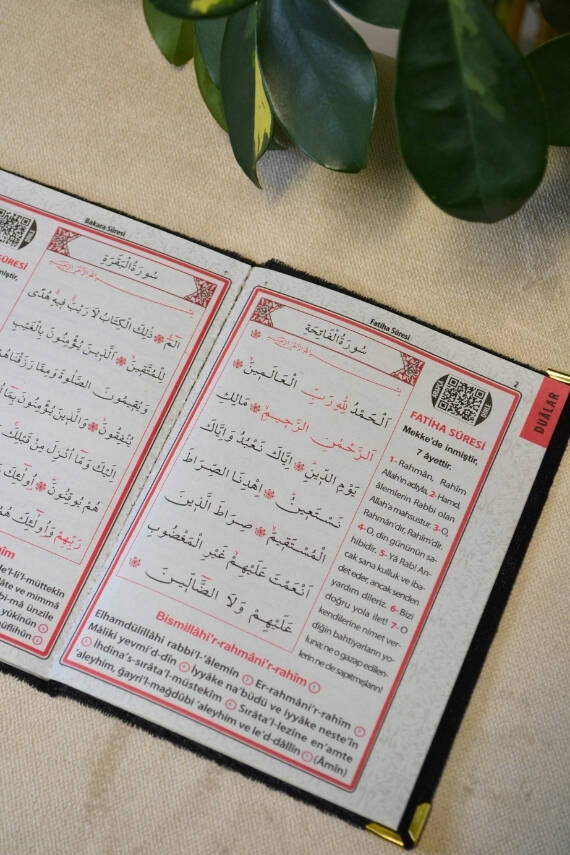 Bakara Sûresi
سُورَةُ الْبَقَرَةِ
الٓمٓ ذٰلِكَ الْكِتَابُ لَا رَيْبَ فِيهِ هُدًى
لِلْمُتَّقِينَ اَلَّذِينَ يُؤْمِنُونَ بِالْغَيْبِ
وَيُقِيمُونَ الصَّلٰوةَ وَمِمَّا رَزَقْنَاهُمْ
يُنْفِقُونَ وَالَّذِينَ يُؤْمِنُونَ بِمَا
اِلَيْكَ وَمَا اُنْزِلَ مِنْ قَبْلِكَ
هُمْ يُوقِنُونَ اُولٰٓئِكَ
رَبِّهِمْ وَاُولٰٓئِكَ هُمُ
SÛRESİ
Fatiha Sûresi
2
DUÂLAR
سُورَةُ الْفَاتِحَةِ
بِسْمِ اللّٰهِ الرَّحْمٰنِ الرَّحِيمِ
اَلْحَمْدُ لِلّٰهِ رَبِّ الْعَالَمِينَ
اَلرَّحْمٰنِ الرَّحِيمِ مَالِكِ
يَوْمِ الدِّينِ اِيَّاكَ نَعْبُدُ وَاِيَّاكَ
نَسْتَعِينُ اِهْدِنَا الصِّرَاطَ
الْمُسْتَقِيمَ صِرَاطَ الَّذِينَ
اَنْعَمْتَ عَلَيْهِمْ غَيْرِ الْمَغْضُوبِ
عَلَيْهِمْ وَلَا الضَّٓالِّينَ
FATİHA SÛRESİ
Mekke'de inmiştir.
7 âyettir.
1- Rahmân, Rahîm
Allah'ın adıyla. 2- Hamd,
âlemlerin Rabbi olan
Allah'a mahsustur. 3- O,
Rahmân'dır, Rahîm'dir.
4- O, din gününün sa-
hibidir. 5- Yâ Rab! An-
cak sana kulluk ve iba-
det eder, ancak senden
yardım dileriz. 6- Bizi
doğru yola ilet! 7- O
kendilerine nimet ver-
diğin bahtiyarların yo-
luna; ne o gazap edilen-
lerin ne de sapmışların!
Bismillâhi'r-rahmâni'r-rahîm 1
Elhamdülillâhi rabbi'l-'âlemîn 2 Er-rahmâni'r-rahîm 3
Mâliki yevmi'd-dîn 4 İyyâke na'büdü ve iyyâke neste'în
5 İhdina's-sırâta'l-müstekîm 6 Sırâta'l-lezîne en'amte
'aleyhim, ğayri'l-mağdûbi 'aleyhim ve le'd-dâllîn 7 (Âmîn)